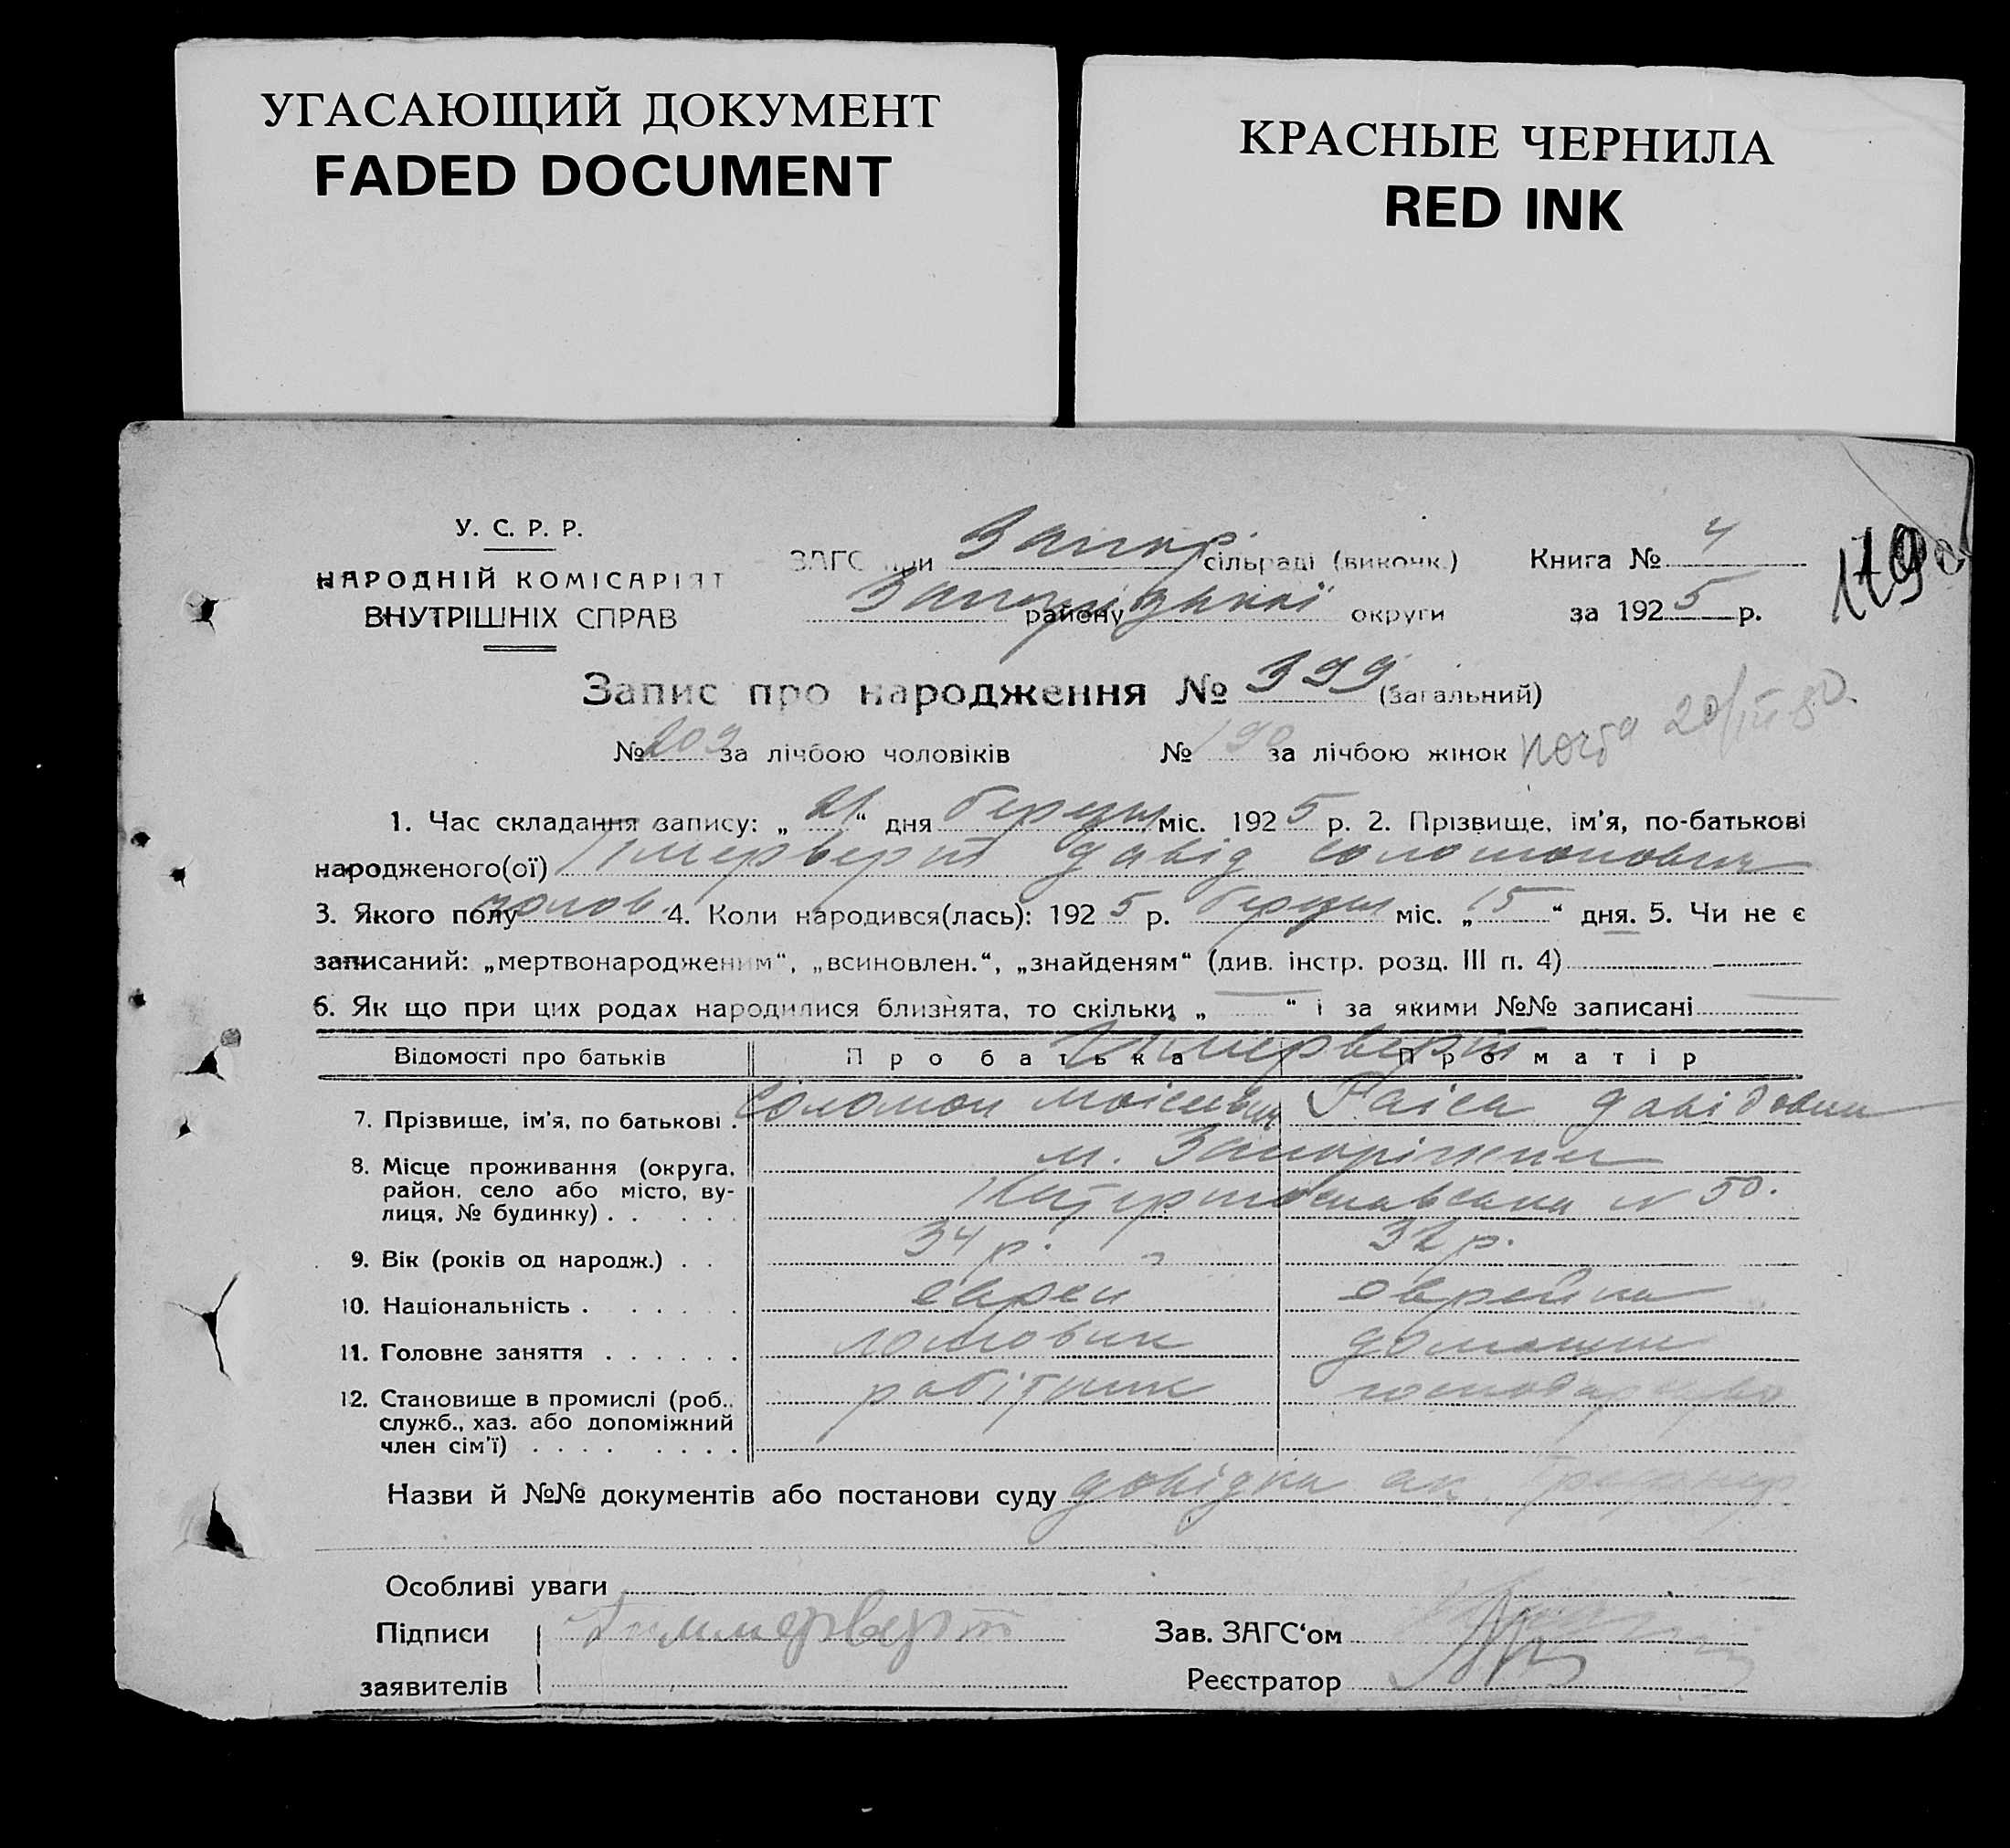 УГАСАЮЩИЙ ДОКУМЕНТ
FADED DOCUMENT
КРАСНЫЕ ЧЕРНИЛА
RED INK
У. С. Р. Р.
НАРОДНІЙ КОМІСАРІЯТ
ВНУТРІШНІХ СПРАВ
ЗАГС при Запор. сільраді (виконк.)
Запорізької району округи
Книга № 4
за 1925 р.
Запис про народження № 399 (загальний)
№ 209 за лічбою чоловіків № 190 за лічбою жінок
1. Час складання запису: „21“ дня березня міс. 1925 р. 2. Прізвище, ім'я, по-батькові
народженого(ої) Давід Соломонович
3. Якого полу чолов. 4. Коли народився(лась): 1925 р. березня міс. „15“ дня. 5. Чи не є
записаний: „мертвонародженим“, „всиновлен.“, „знайденям“ (див. інстр. розд. III п. 4)
6. Як що при цих родах народилися близнята, то скільки „ “ і за якими №№ записані
Відомості про батьків Про батька Про матір
7. Прізвище, ім'я, по батькові . Соломон Моісеевич Раіса Давідовна
8. Місце проживання (округа, район, село або місто, вулиця, № будинку) . . м. Запоріжжя
Катеринославська № 50.
9. Вік (років од народж.) . . 34 р. 32 р.
10. Національність . еврей еврейка
11. Головне заняття . . . . . . ломовик домашнє
12. Становище в промислі (роб., служб., хаз. або допоміжний член сім'ї) . . . . робітник господарство
Назви й №№ документів або постанови суду довідка ак.
Особливі уваги
Підписи
заявителів
Зав. ЗАГС‘ом
Реєстратор